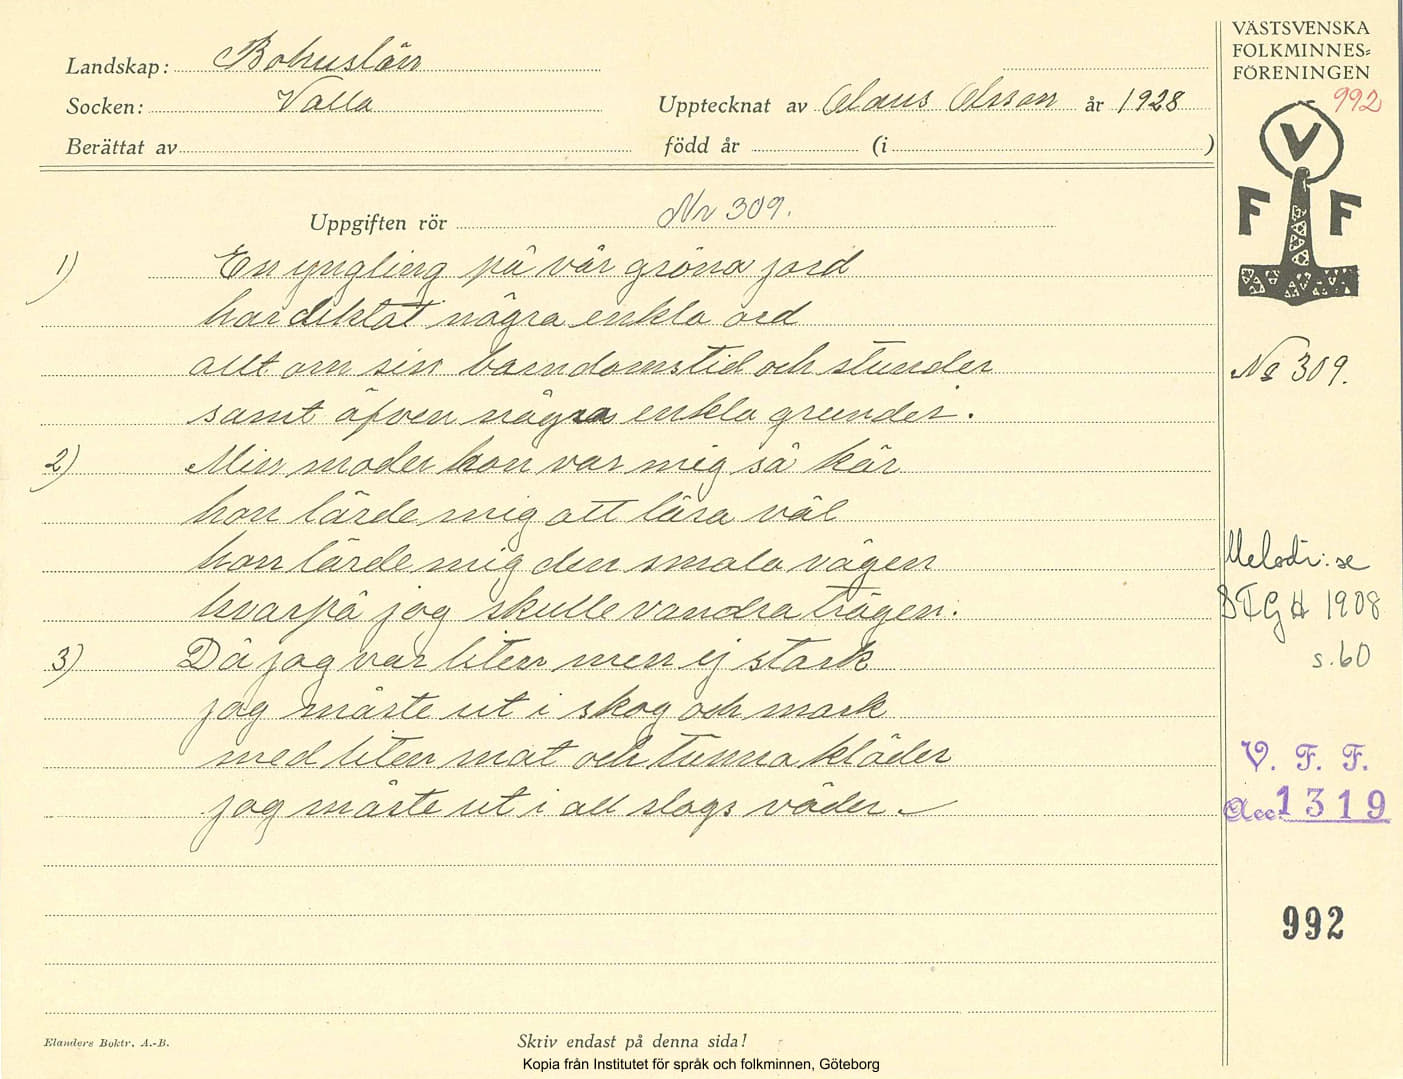 Landskap: Bohuslän
Socken: Valla
Upptecknat av Claus Olsson år 1928
Berättat av
född år (i )
Uppgiften rör Nr 309.
1) En yngling på vår gröna jord
har diktat några enkla ord
allt om sin barndomstid och stunder
samt äfven några enkla grunder.
2) Min moder hon var mig så kär
hon lärde mig att lära väl
hon lärde mig den smala vägen
hvarpå jag skulle vandra trägen.
3) Då jag var liten men ej stark
jag måste ut i skog och mark
med liten mat och tunna kläder
jag måste ut i all slags väder.
Elanders Boktr. A.-B.
Skriv endast på denna sida!
Kopia från Institutet för språk och folkminnen, Göteborg
VÄSTSVENSKA
FOLKMINNES-
FÖRENINGEN
992
V
F F
No 309.
Melodi: se
STGH 1908
s. 60
V. F. F.
Acc. 1319
992